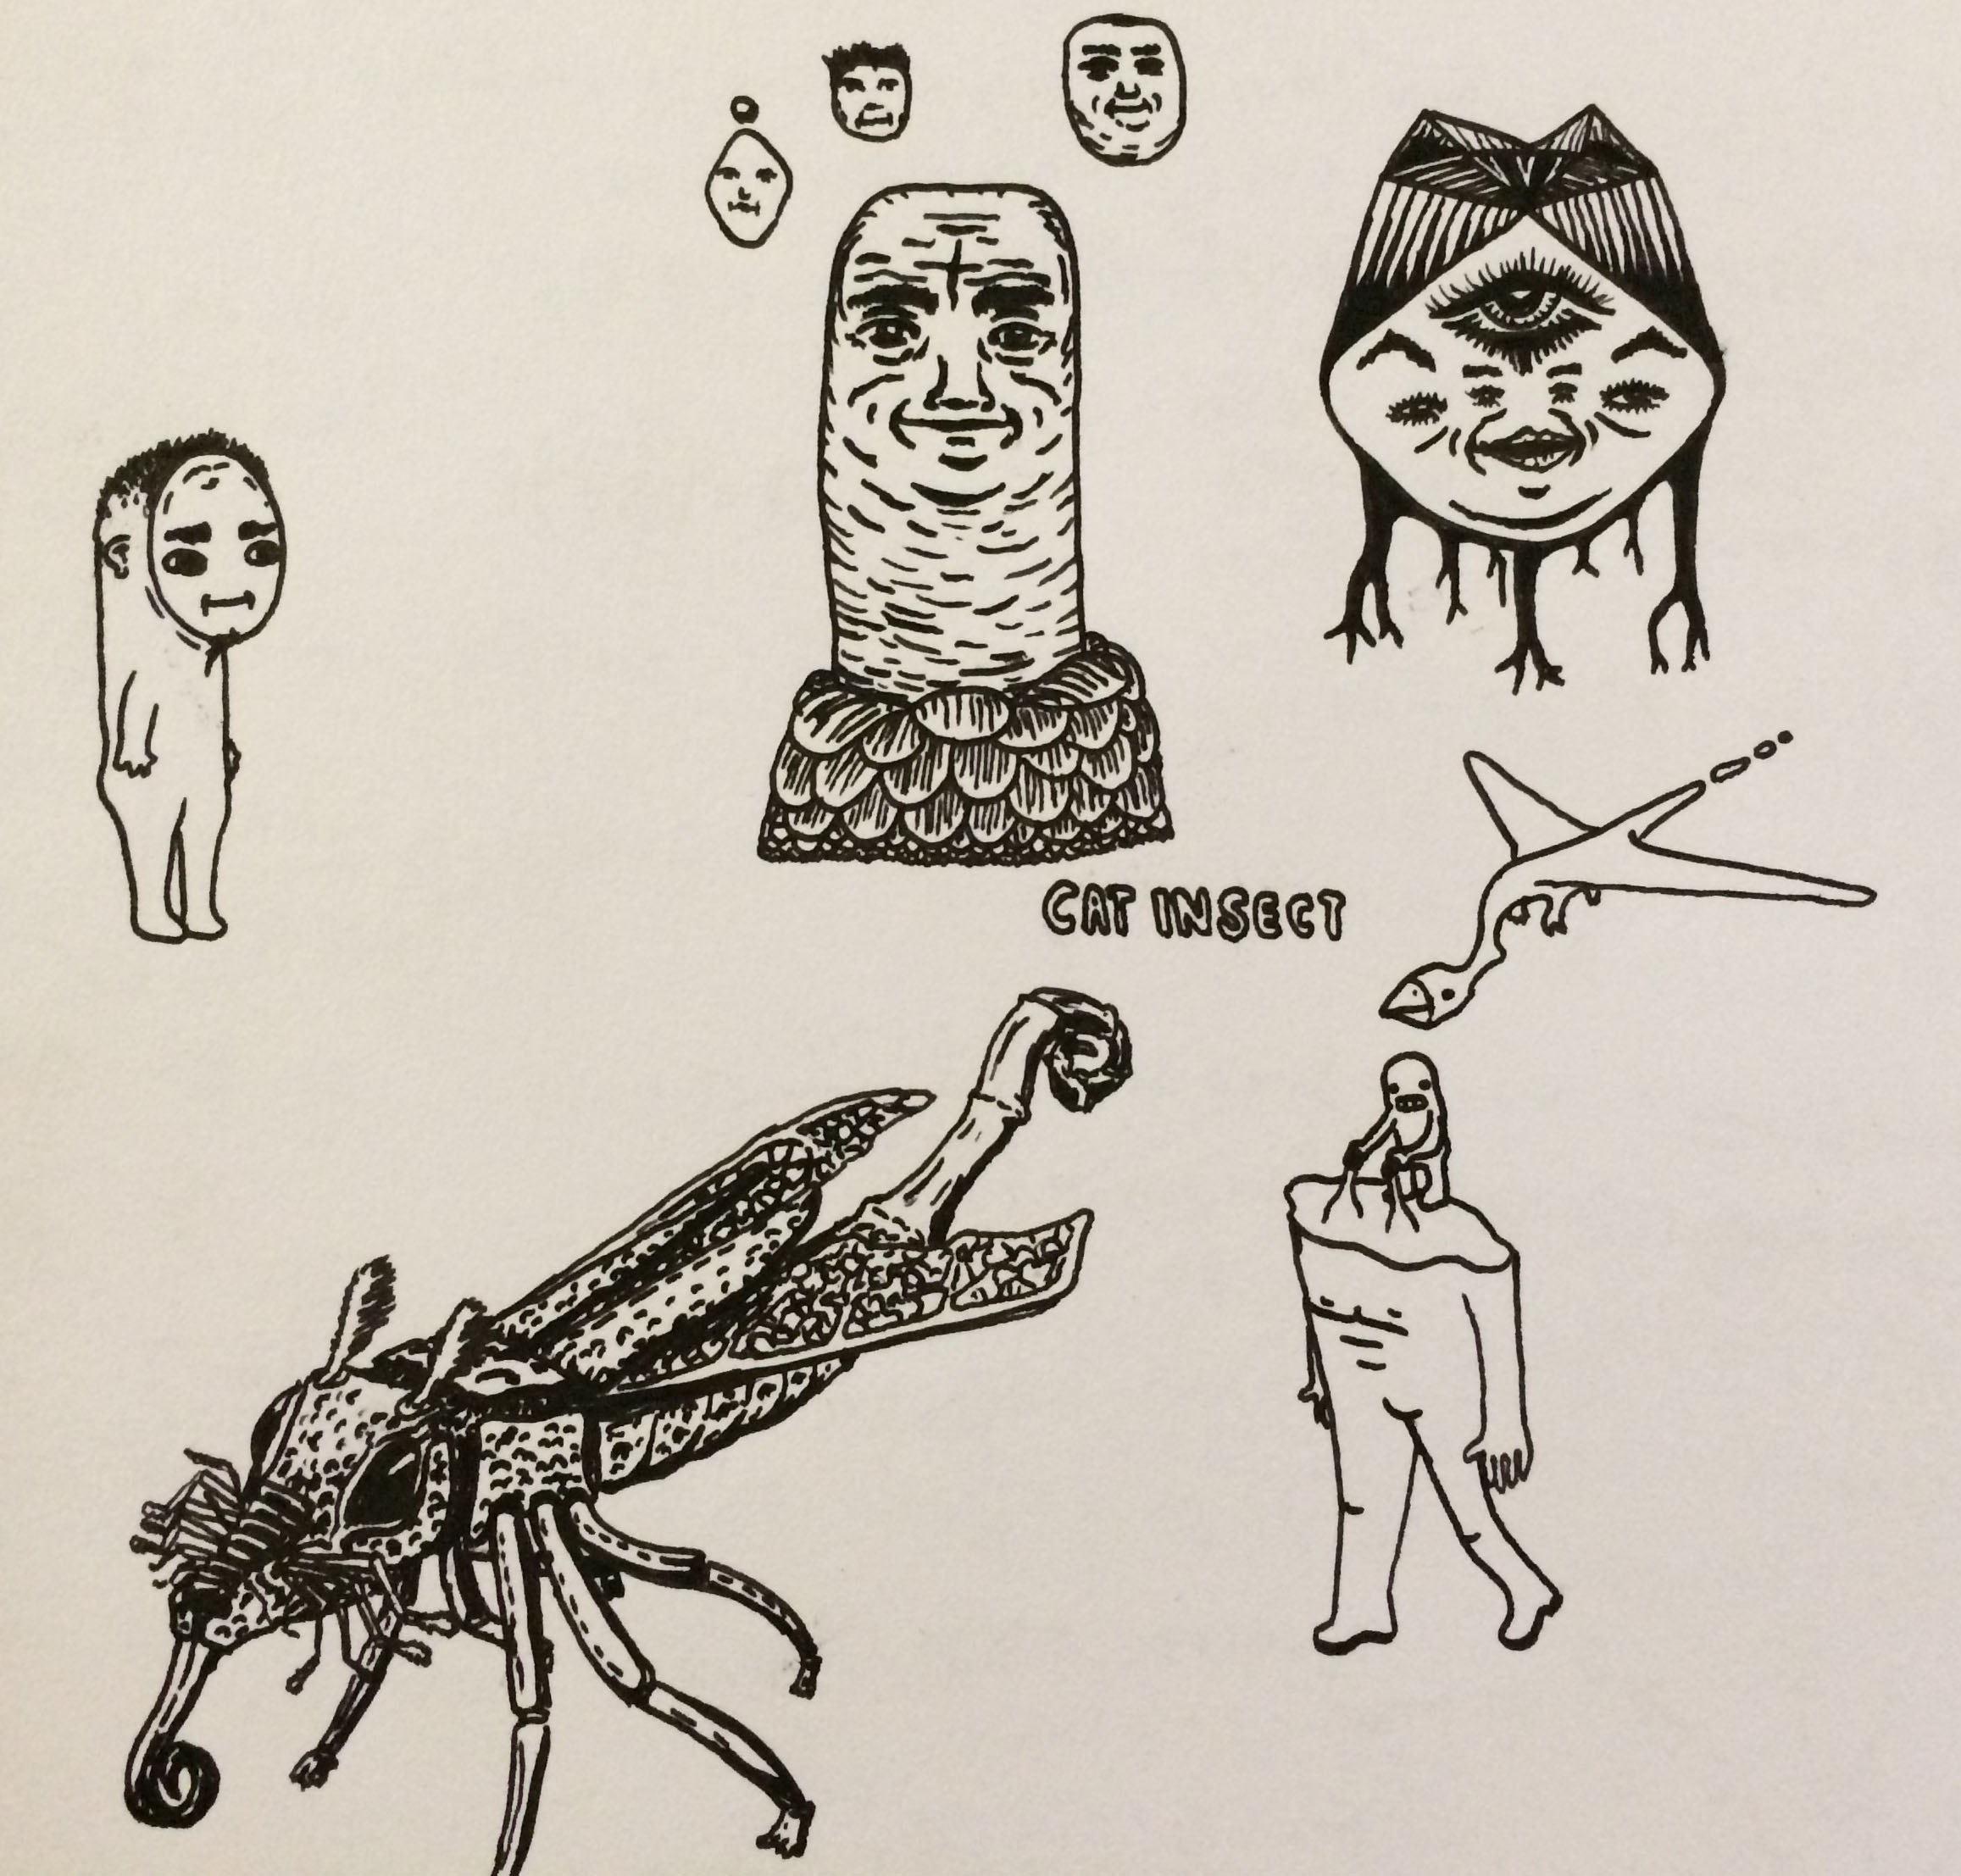 CAT INSECT